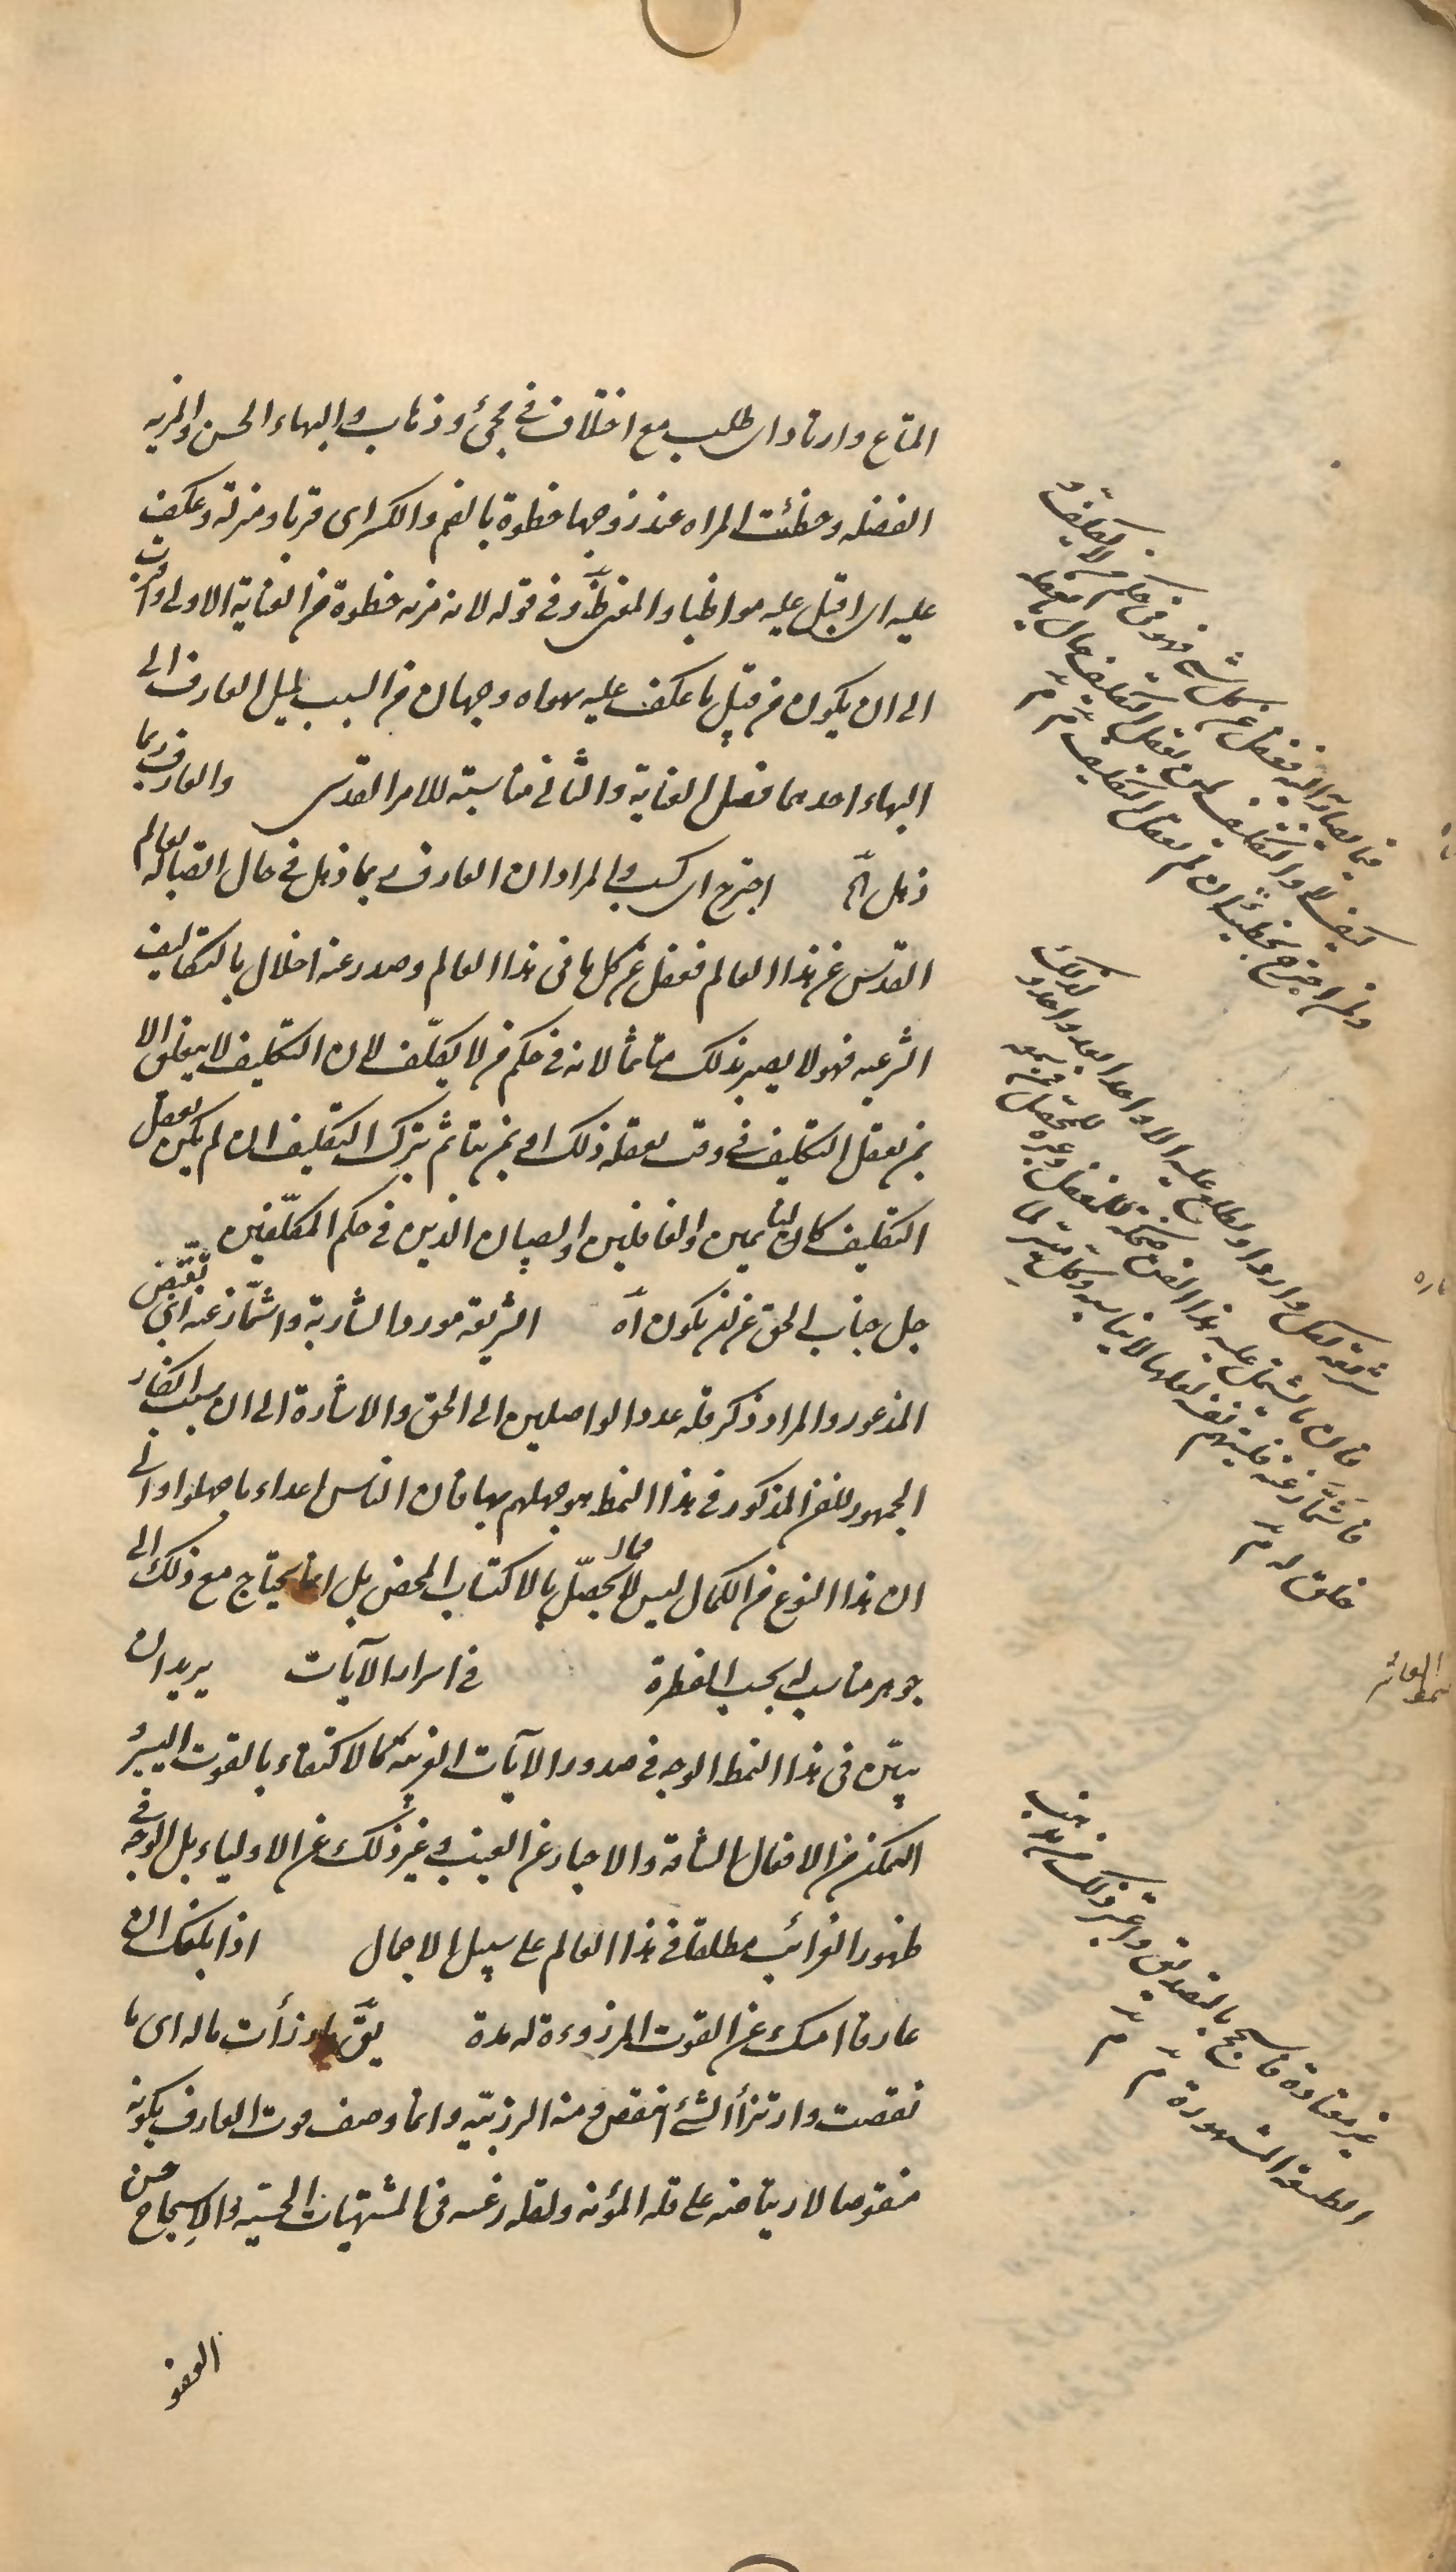 المتاع وارتاد اى طلب مع اختلاف فى مجئ وذهاب والبهاء الحسن والمزيه
الفضله وحظئت المراه عند زوجها حظوة بالضم والكسر اى قربا ومنزلة وعكف
عليه اى اقبل عليه مواظبا والمعنى ظ وفى قوله لانه مزيه حظوة من العناية الاولى واقرب
الى ان يكون من قبيل ما عكف عليه بهواه وجهان من السبب لميل العارف الى
البهاء احدهما فضل العناية والثانى مناسبته للامر القدسى والعارف ربما
ذهل اه اجترح اى كسب والمراد ان العارف ربما ذهل فى حال اتصاله بعالم
القدس عن هذا العالم فغفل عن كل ما فى هذا العالم وصدر عنه اخلال بالتكاليف
الشرعيه فهو لا يصير بذلك متاثما لانه فى حكم من لا يكلّف لان التكليف لا يتعلق الا
بمن يعقل التكليف فى وقت يعقله ذلك او بمن يتاثم بترك التكليف ان لم يكن يعقل
التكليف كالنائمين والغافلين والصبيان الذين فى حكم المكلّفين
جل جناب الحق عن ان يكون اه الشريعة مورد الشاربة واشمأز عنه اى تقبّض
المذعور والمراد ذكر قلة عدد الواصلين الى الحق والاشارة الى ان سبب انكار
الجمهور للفن المذكور فى هذا النمط هو جهلهم بها فان الناس اعداء ما جهلوا والى
ان هذا النوع من الكمال ليس مما يحصّل بالاكتساب المحض بل انما يحتاج مع ذلك الى
جوهر مناسب له بحسب الفطرة فى اسرار الآيات يريد ان
يبيّن فى هذا النمط الوجه فى صدور الآيات الغريبة كالاكتفاء بالقوت اليسير
التمكن من الافعال الشاقة والاخبار عن الغيب وغير ذلك عن الاولياء بل الوجه فى
ظهور الغرائب مطلقا فى هذا العالم على سبيل الاجمال اذا بلغك ان
عارفا امسك عن القوت المرزوءة له مدة يقّ ما رزأت ماله اى ما
نقصت وارتزأ الشئ انتقص ومنه الرزيّه وانما وصف قوت العارف بكونه
منقوصا لارتياضه على قلة المؤنه ولقلة رغبته فى المشتهيات الحسيّه والاسجاح حسن
العفو
فيما يصار به اليه فغفل عن كل شئ فهو فى حكم من لا يكلّف و
كيف لا والتكليف لمن يعقل التكليف حال ما يعقله
ولمن اجترح بخطيئته ان لم يعقل التكليف م م
شريعة لكل وارد او يطلع عليه الا واحد بعد واحد و لذلك
فان ما يشتمل عليه هذا الفن ضحكة للمغفل وعبرة للمحصل فمن سمعه
فاشمأزّ عنه فليتهم نفسه لعلها لا تناسبه وكل ميسر لما
خلق له م
غير معتادة فاسجح بالتصديق واعتبر ذلك من مذاهب
الطبيعة المشهورة م م
النمط العاشر